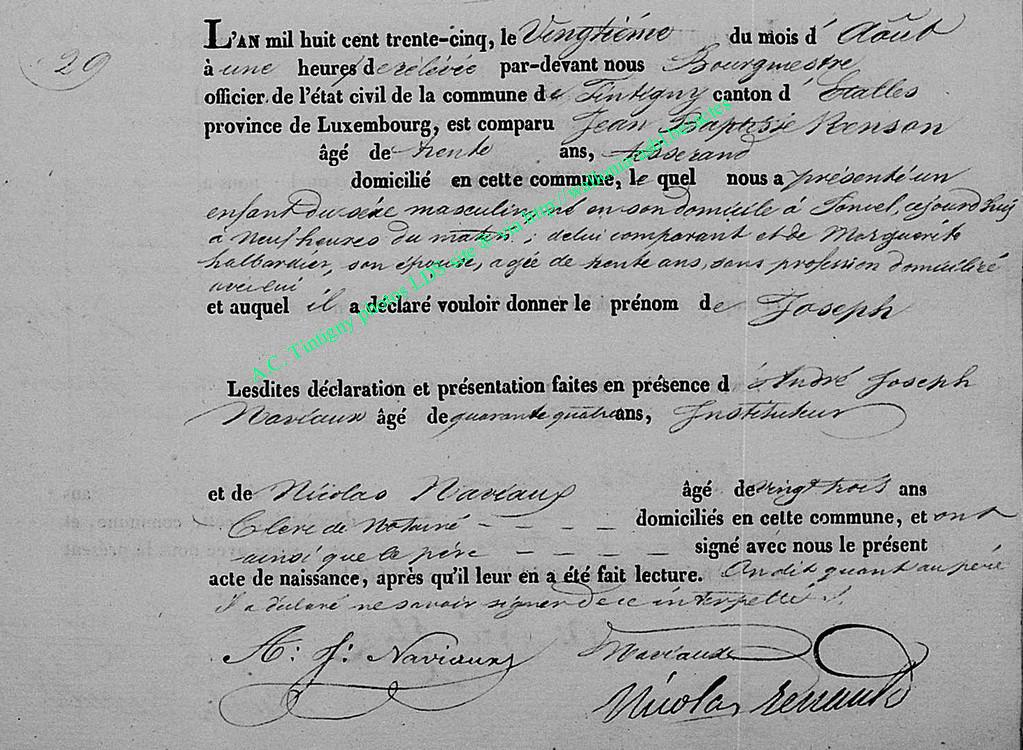 29
L'AN mil huit cent trente-cinq, le Vingtième du mois d' Août
à une heures de relévée par-devant nous Bourgmestre
officier de l'état civil de la commune de Tintigny canton d' Etalles
province de Luxembourg, est comparu Jean Baptiste Renson
âgé de trente ans, tisserand
domicilié en cette commune, le quel nous a présenté un
enfant du séxe masculin né en son domicile à , cejourd'huij
à Neuf heures du matin ; de lui comparant et de Marguerite
halbardier, son épouse, agée de trente ans, sans profession domiciliée
avec lui
et auquel il a déclaré vouloir donner le prénom de Joseph
Lesdites déclaration et présentation faites en présence d' André Joseph
Naviaux âgé de quarante quatre ans, Instituteur
et de Nicolas Naviaux âgé de vingt trois ans
Clerc de Notaire - - - - domiciliés en cette commune, et ont
ainsi que le père - - - - signé avec nous le présent
acte de naissance, après qu'il leur en a été fait lecture. On dit quant au père
il a déclaré ne savoir signer de ce interpellé.
A: J: Naviaux Naviaux
Nicolas
A.C. Tintigny photos LDS site & via http://